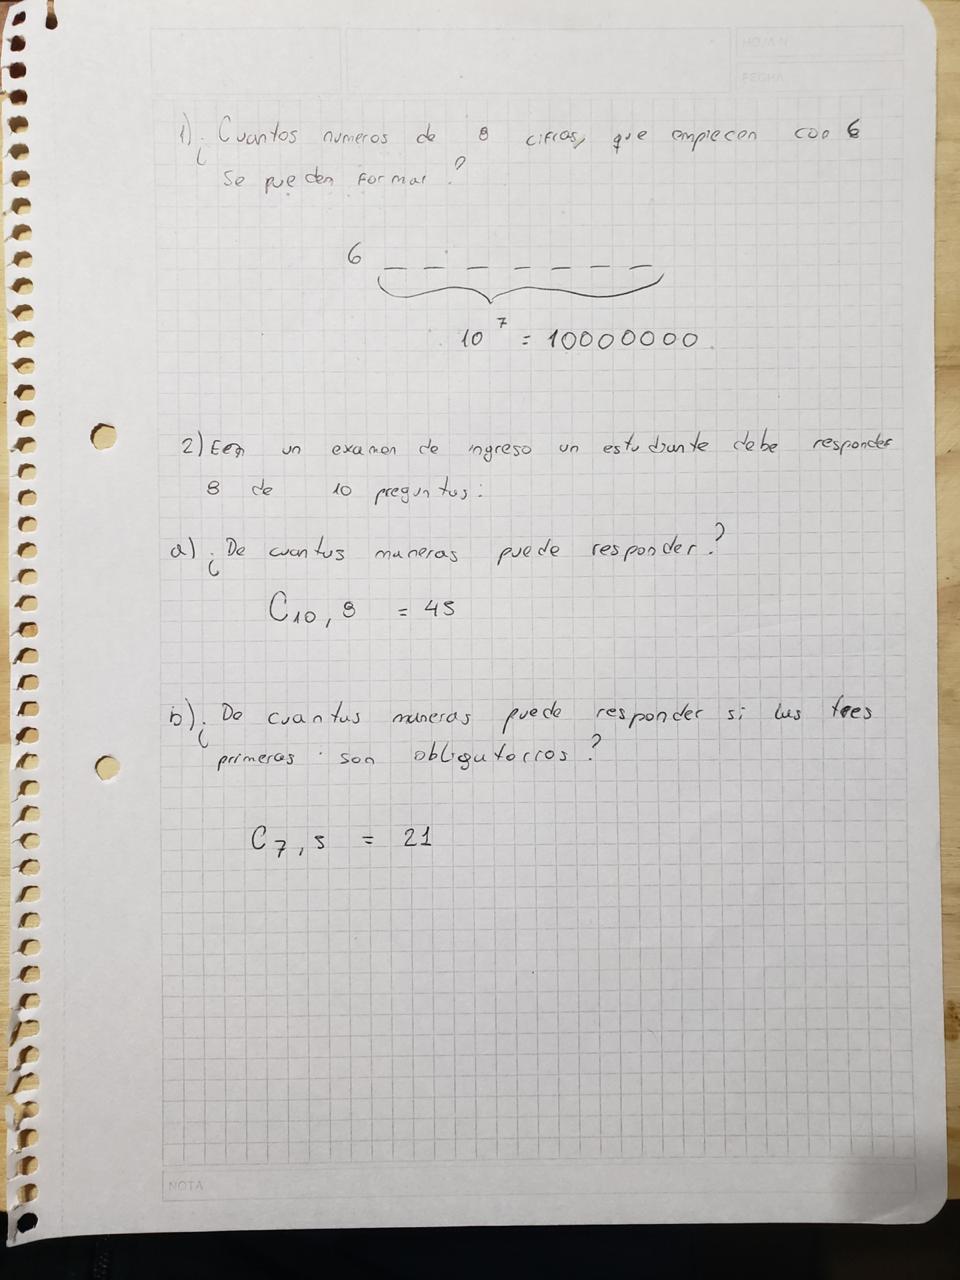 HOJA N
FECHA
1) ¿Cuantos numeros de 8 cifras, que empiecen con 6
Se pueden formar?
6 _ _ _ _ _ _ _
10^7 = 10000000
2) Een un examen de ingreso un estudiante debe responder
8 de 10 preguntas:
a) ¿De cuantas maneras puede responder?
C10,8 = 45
b) ¿De cuantas maneras puede responder si las tres
primeras son obligatorios?
C7,5 = 21
NOTA